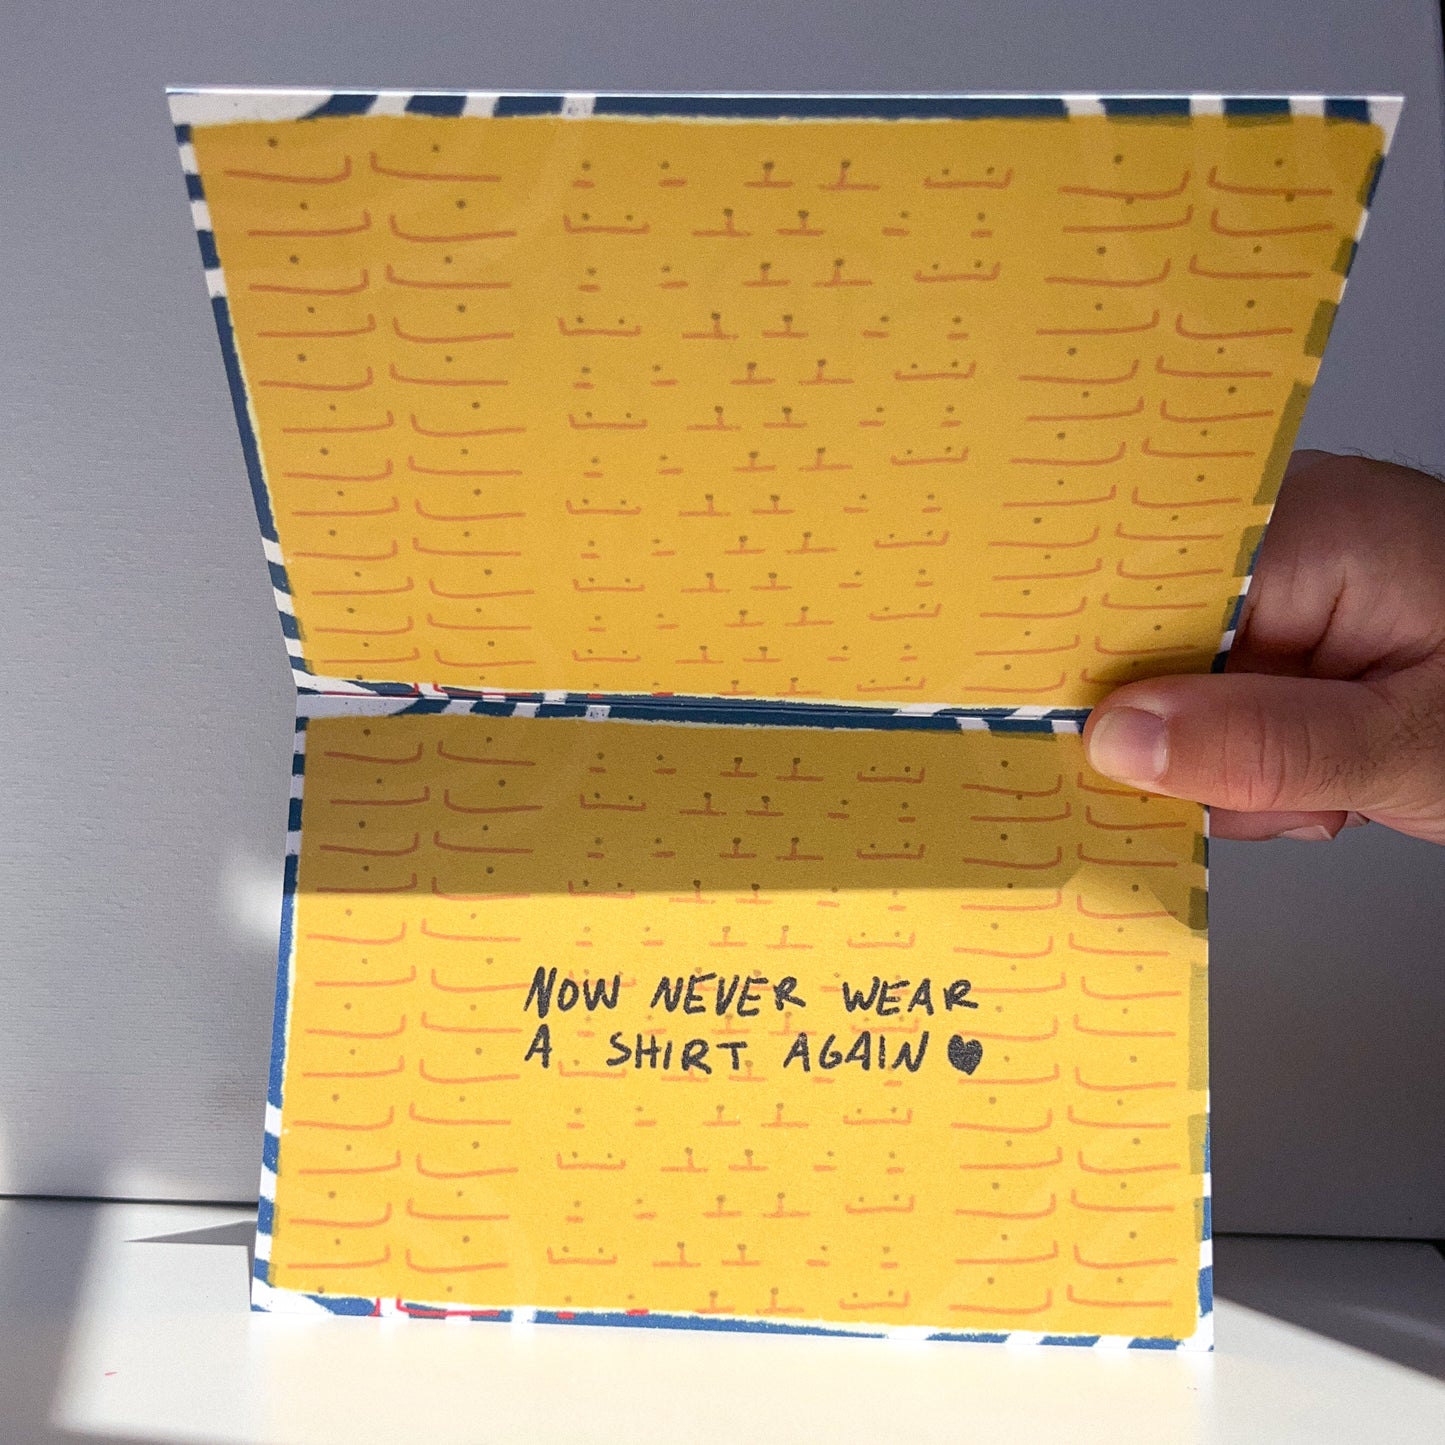 NOW NEVER WEAR
A SHIRT AGAIN♥